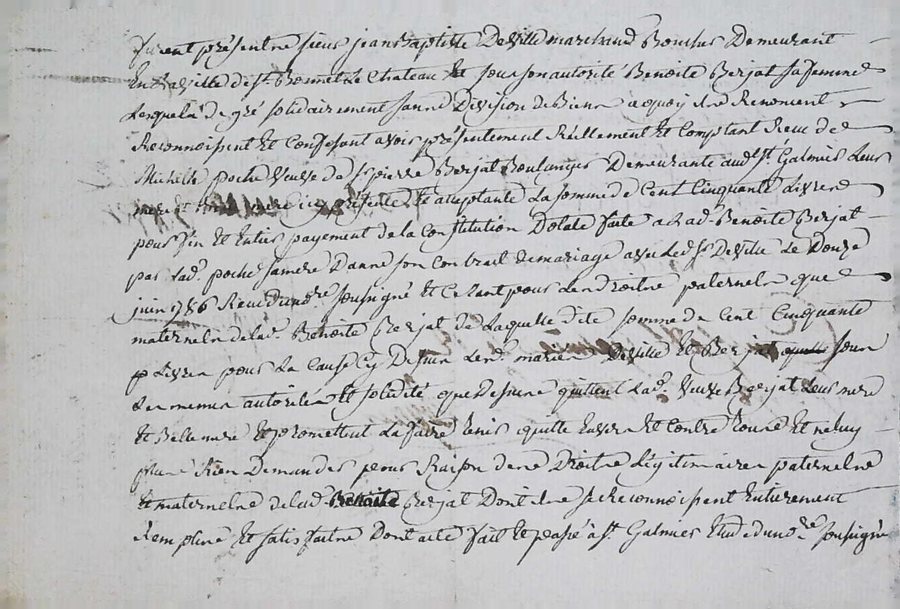 furent présentne sieur jean Baptiste Deville marchand Boucher Demeurant
En la ville de st. Bonnet le Chateau Et sous son autorité Benoite Berjat sa femme
Lesquels de gré solidairement sanne Division de Bienn a quoy ilne Renoncent
Reconnoissent Et Confessent avoir présentement Réellement Et Comptant Receu de
Michelle poche veuve de sr. pierre Berjat Boulanger Demeurante aud. st. Galmier Leur
mere Et Belle mere icy présente Et acceptante La somme de Cent Cinquante Livrene
pour fin Et Entier payement de la Constitution Dotale faite a Lad. Benoite Berjat
par Lad. poche sa mere Danne son Contrait de mariage avec Led. sr. Deville Le Douze
juin 1786 Receu du nore. soussigné Et Ce tant pour Les droitne paternelne que
maternelne de lad. Benoite Berjat de Laquelle dite somme de Cent Cinquante
Livrene pour La Cause Cy Dessus Lesd. mariene Deville Et Berjat sous
Les meme autorité Et solidité que Dessune quittent Lad. Veuve Berjat Leur mere
Et Belle mere Et promettent La faire tenir quitte Envers Et Contre toune Et ne luy
plune Rien Demander pour Raison dene Droitne Légitimairene paternelne
Et maternelne de lad. Benoite Berjat Dont ilne se Reconnoissent Entierement
Rempline Et satisfaitne Dont acte fait Et passé a st. Galmier Etude du nore. soussigné